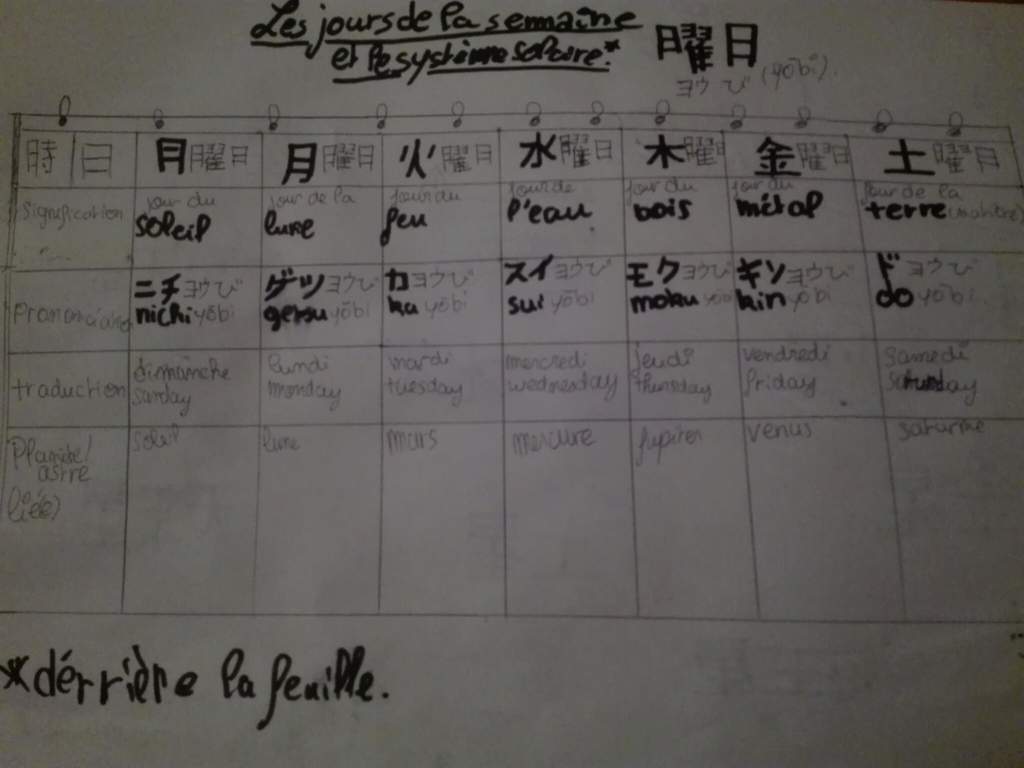 Les jours de la semmaine
et le système solaire.*
曜日
ヨウび (yōbi).
時 日 月曜日 月曜日 火曜日 水曜日 木曜日 金曜日 土曜日
Signification jour du soleil jour de la lune jour du feu jour de l'eau jour du bois jour du métal jour de la terre
ニチヨウび ゲツヨウび カヨウび スイヨウび モクヨウび キソヨウび ドヨウび
nichi yōbi yōbi ka yōbi sui yōbi moku yōbi kin yōbi do yōbi
traduction dimanche lundi mardi mercredi jeudi vendredi samedi
monday tuesday wednesday thursday friday
Planète/ astre liée) soleil lune mars mercure jupiter venus saturne
*dérrière la feuille.